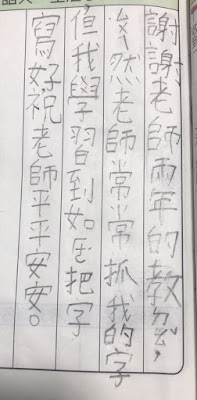 謝謝老師兩年的教導,
雖然老師常常抓我的字
但我學習到如何把字
寫好祝老師平平安安。